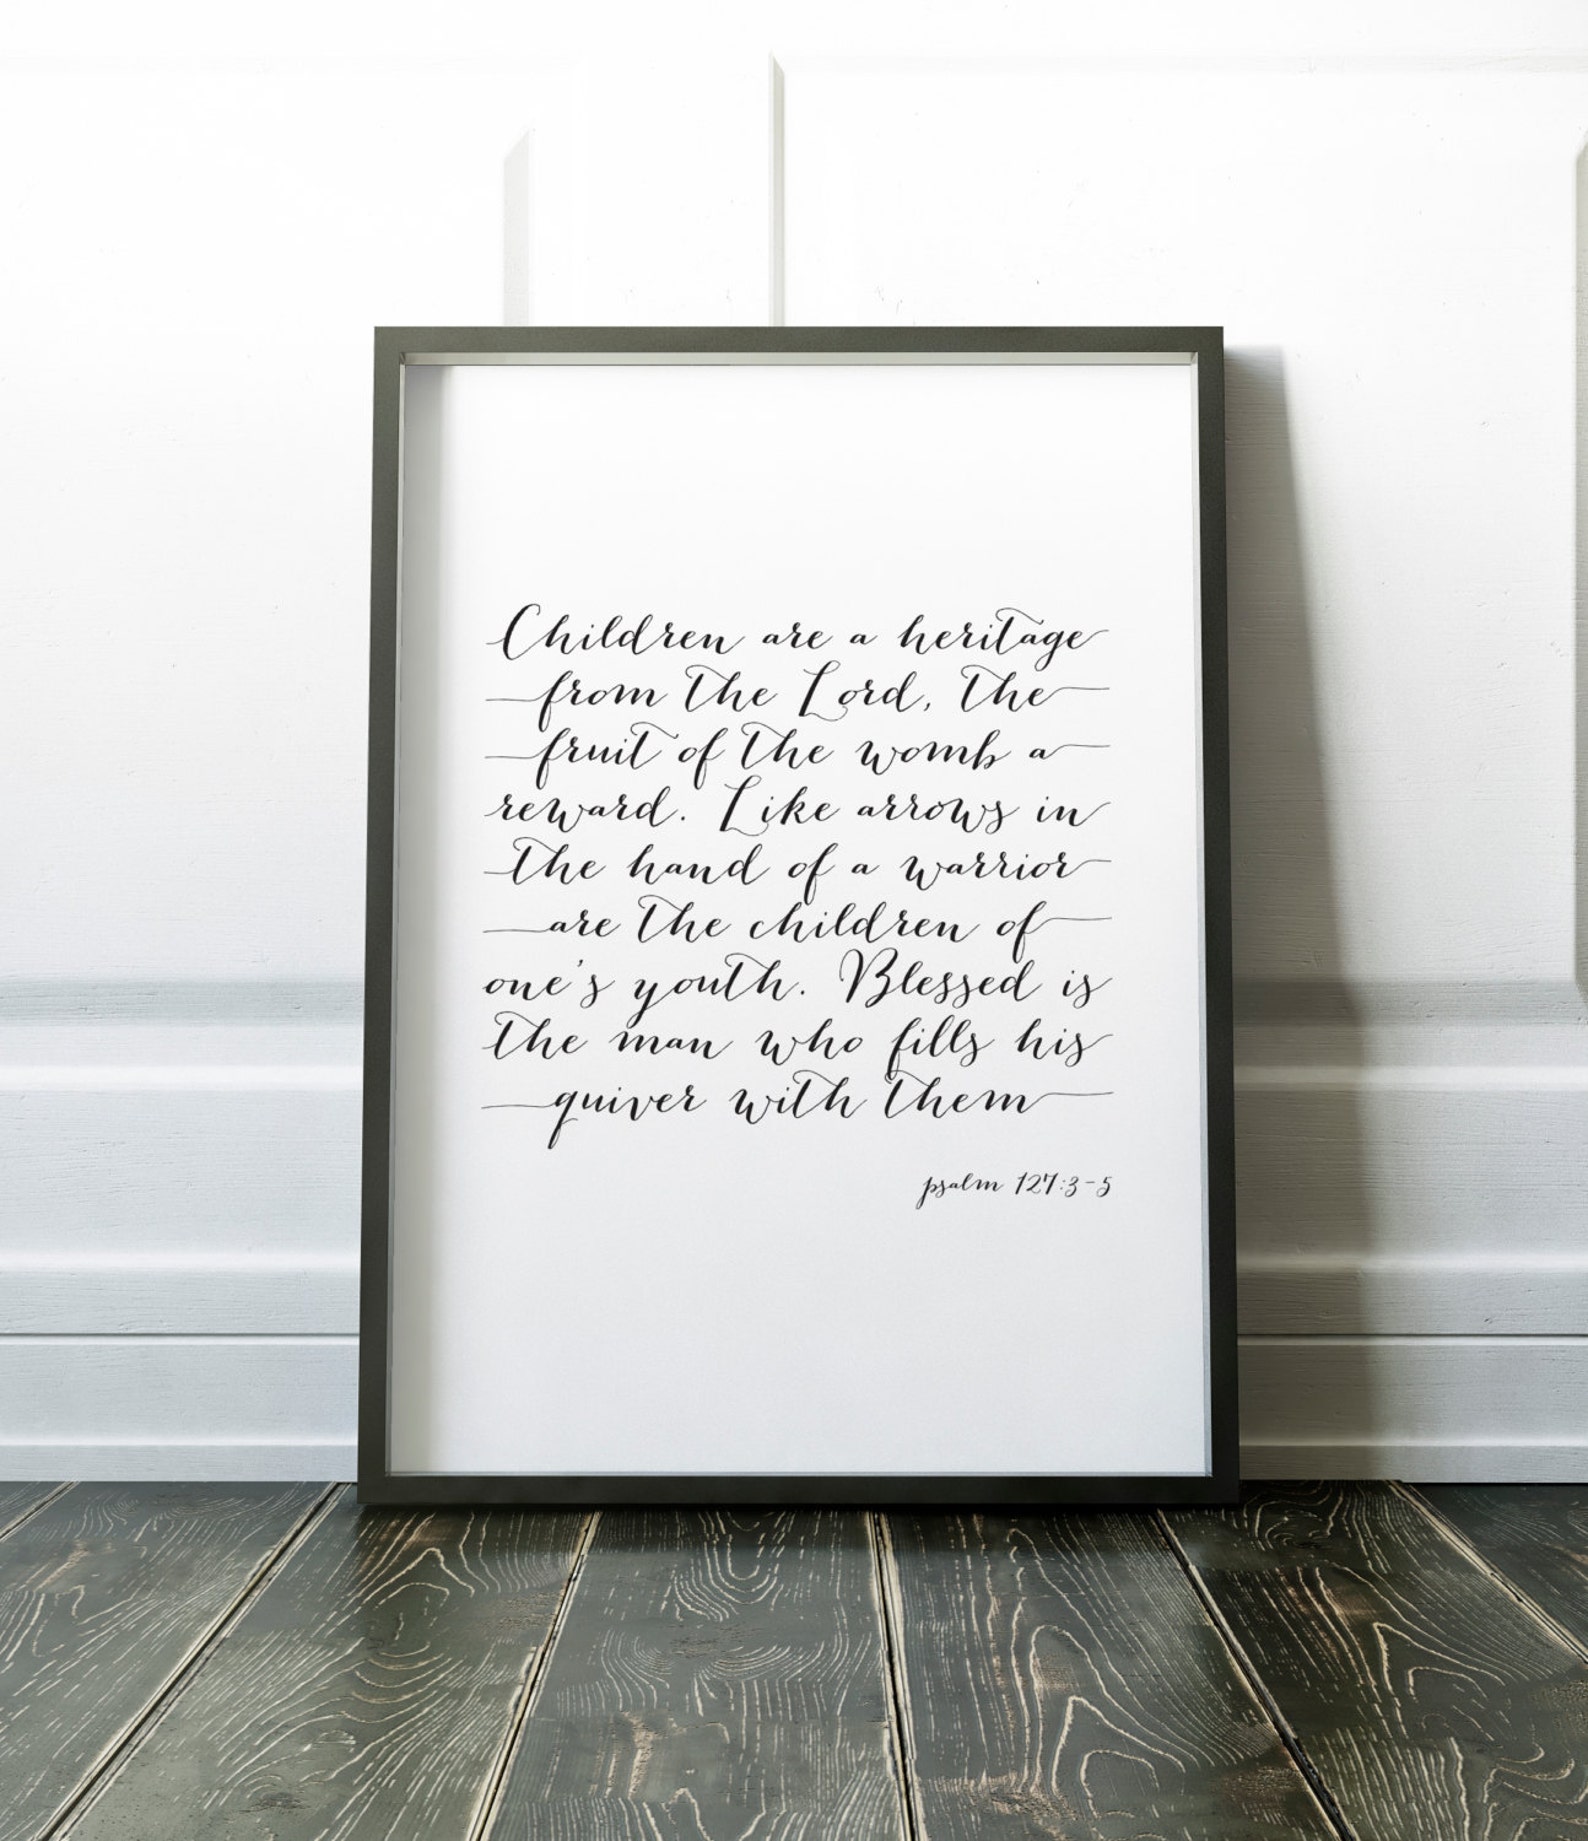 Children are a heritage
from the Lord, the
fruit of the womb a
reward. Like arrows in
the hand of a warrior
are the children of
one's youth. Blessed is
the man who fills his
quiver with them
psalm 127:3-5